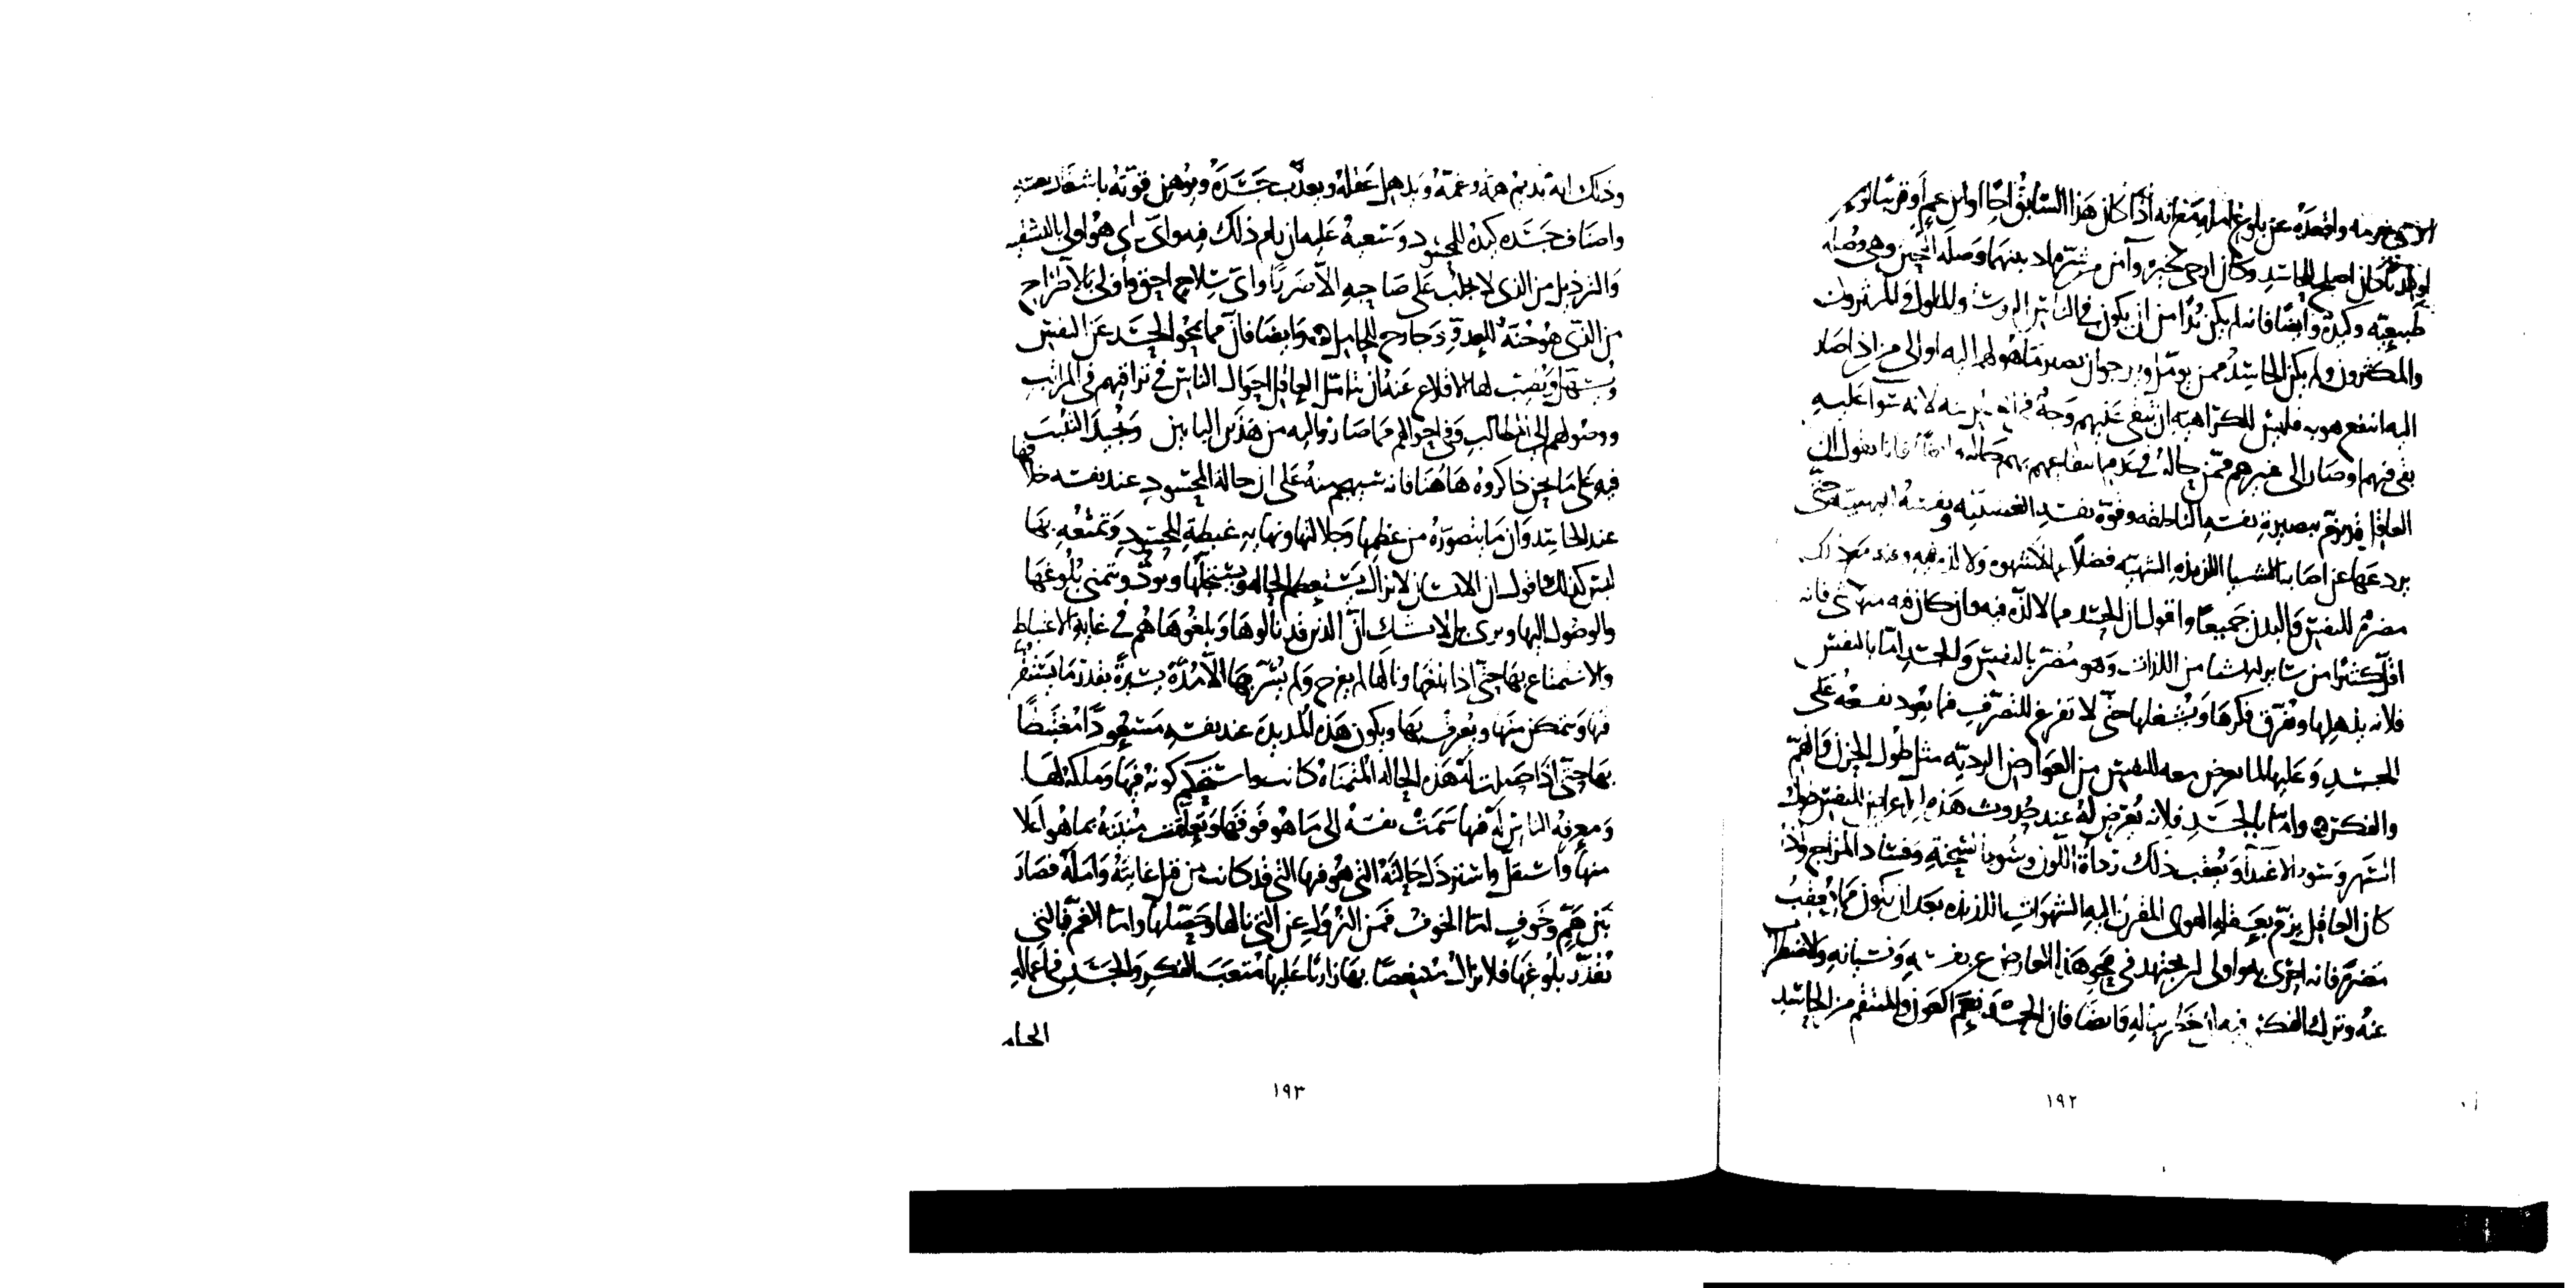 لانه بذلك اصلح للحاسد وكان ارجى لخيره وآمن من شره اذ بينهما وصلة الجنس وهي وصلة
طبيعية وكيدة وايضا فانه لم يكن بد من ان يكون في الناس الرؤسا والملوك والمثرون
والمكثرون ولم يكن الحاسد ممن يومل ويرجو ان يصير ما هو لهم اليه او الى من اذا صار
اليه انتفع هو به فليس للكراهية ان تبقى عليهم وجه لانه سوا عليه
بقى فيهم او صار الى غيرهم ممن حاله في عدم انتفاعه بهم حالهم وايضا فانا نقول ان
العاقل قد يزم ببصيرة نفسه الناطقة وقوة نفسه الغضبية نفسه البهيمية حتى
يردعها عن اصابة الاشيا اللذيذة الشهية فضلا عما لا شهوة ولا لذة فيه وفيه مع ذلك
مضرة للنفس والبدن جميعا واقول ان الحسد مما لا لذة فيه وان كان فيه منها شي فانه
اقل كثيرا من سائر الاشيا من اللذات وهو مضر بالنفس والجسد اما بالنفس
فلانه يذهلها ويعزق فكرها ويشغلها حتى لا تفرغ للتصرف فيما يعود نفعه على
الجسد وعليها لما يعرض معه للنفس من العوارض الردية مثل طول الحزن والهم
والفكر واما بالجسد فلانه يعرض له عند حدوث هذه الاعراض للنفس طول
السهر وسو الاغتذا ويعقب ذلك رداة اللون وسو السحنة وفساد المزاج واذا
كان العاقل يزم بعقله الهوى المقرن اليه الشهوات اللذيذة بعد ان تكون مما يعقب
مضرة فانه احرى به واولى ان يجتهد في محو هذا العارض عن نفسه ونسيانه والاضراب
عنه وترك الفكر فيه ان خطر بباله وايضا فان الحسد نعم العون والمنتقم من الحاسد
١٩٢
وذلك انه يديم همه وغمه ويذهل عقله ويعذب جسده ويوهن قوته باشغال نفسه
واضعاف جسده كيده للمحسود وسعيه عليه ان رام ذلك فهو اي راي هو اولى بالتسفيه
والترذيل من الذي لا يجلب على صاحبه الا ضررا واي سلاح احق واولى بالاطراح
من الذي هو جنة للعدو وجارح للحامل له وايضا فان مما يمحو الحسد عن النفس
ويسهل ويطيب لها الاقلاع عنه ان يتامل العاقل احوال الناس في ترقيهم في المراتب
ووصولهم الى المطالب وفي احوالهم مما صاروا اليه من هذين البابين ويجيد التثبت
فيه على ما نحن ذاكروه هاهنا فانه سيهجم منه على ان حالة المحسود عند نفسه خلافها
عند الحاسد وان ما يتصوره من عظمها وجلالتها ونهاية غبطة المحسود وتمتعه بها
ليس كذلك اقول ان الانسان لا يزال يستعظم الحالة ويستجلها ويود ويتمنى بلوغها
والوصول اليها ويرى بل لا يشك ان الذين قد نالوها وبلغوها هم في غاية الاغتباط
والاستمتاع بها حتى اذا بلغها ونالها لم يفرح ولم يسر بها الا مدة يسيرة بقدر ما يستقر
فيها ويتمكن منها ويعرف بها ويكون هذه المديدة عند نفسه مسعودا مغتبطا
بها حتى اذا حصلت له هذه الحالة المتمناة كانت واستحكم كونه فيها وملكه لها
ومعرفة الناس له فيها سمت نفسه الى ما هو فوقها وتعلقت منيته بما هو اعلا
منها واستقل واسترذل حالته التي هو فيها التي قد كانت من قبل غايته وامله فصار
بين هم وخوف اما الخوف فمن النزول عن التي نالها وحصلها واما الغم فبالتي
يقدر بلوغها فلا يزال متنغصا بها زاريا عليها متعب الفكر والجسد في اعماله
الحيلة
١٩٣